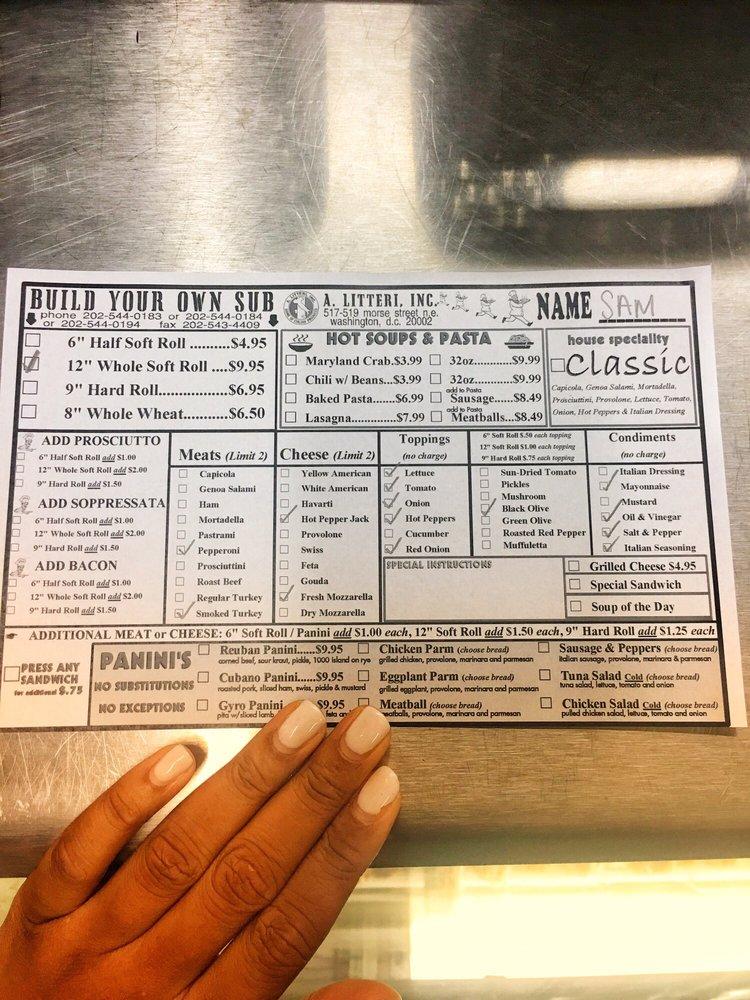 BUILD YOUR OWN SUB
phone 202-544-0183 or 202-544-0184
or 202-544-0194 fax 202-543-4409
A. LITTERI, INC.
517-519 morse street n.e.
washington, d.c. 20002
NAME SAM
6" Half Soft Roll ..........$4.95
12" Whole Soft Roll ....$9.95
9" Hard Roll................$6.95
8" Whole Wheat........$6.50
HOT SOUPS & PASTA
Maryland Crab.$3.99 32oz............$9.99
Chili w/ Beans...$3.99 32oz............$9.99
add to Pasta
Baked Pasta.......$6.99 Sausage......$8.49
add to Pasta
Lasagna............$7.99 Meatballs...$8.49
house speciality
Classic
Capicola, Genoa Salami, Mortadella,
Prosciuttini, Provolone, Lettuce, Tomato,
Onion, Hot Peppers & Italian Dressing
ADD PROSCIUTTO
6" Half Soft Roll add $1.00
12" Whole Soft Roll add $2.00
9" Hard Roll add $1.50
ADD SOPPRESSATA
6" Half Soft Roll add $1.00
12" Whole Soft Roll add $2.00
9" Hard Roll add $1.50
ADD BACON
6" Half Soft Roll add $1.00
12" Whole Soft Roll add $2.00
9" Hard Roll add $1.50
Meats (Limit 2)
Capicola
Genoa Salami
Ham
Mortadella
Pastrami
Pepperoni
Prosciuttini
Roast Beef
Regular Turkey
Smoked Turkey
Cheese (Limit 2)
Yellow American
White American
Havarti
Hot Pepper Jack
Provolone
Swiss
Feta
Gouda
Fresh Mozzarella
Dry Mozzarella
Toppings
(no charge)
Lettuce
Tomato
Onion
Hot Peppers
Cucumber
Red Onion
6" Soft Roll $.50 each topping
12" Soft Roll $1.00 each topping
9" Hard Roll $.75 each topping
Sun-Dried Tomato
Pickles
Mushroom
Black Olive
Green Olive
Roasted Red Pepper
Muffuletta
Condiments
(no charge)
Italian Dressing
Mayonnaise
Mustard
Oil & Vinegar
Salt & Pepper
Italian Seasoning
SPECIAL INSTRUCTIONS
Grilled Cheese $4.95
Special Sandwich
Soup of the Day
ADDITIONAL MEAT or CHEESE: 6" Soft Roll / Panini add $1.00 each, 12" Soft Roll add $1.50 each, 9" Hard Roll add $1.25 each
PRESS ANY
SANDWICH
for additional $.75
PANINI'S
NO SUBSTITUTIONS
NO EXCEPTIONS
Reuban Panini.....$9.95
corned beef, sour kraut, pickle, 1000 island on rye
Cubano Panini.....$9.95
roasted pork, sliced ham, swiss, pickle & mustard
Gyro Panini $9.95
pita w/ sliced lamb feta
Chicken Parm (choose bread)
grilled chicken, provolone, marinara and parmesan
Eggplant Parm (choose bread)
grilled eggplant, provolone, marinara and parmesan
Meatball (choose bread)
meatballs, provolone, marinara and parmesan
Sausage & Peppers (choose bread)
italian sausage, provolone, marinara & parmesan
Tuna Salad Cold (choose bread)
tuna salad, lettuce, tomato and onion
Chicken Salad Cold (choose bread)
pulled chicken salad, lettuce, tomato and onion